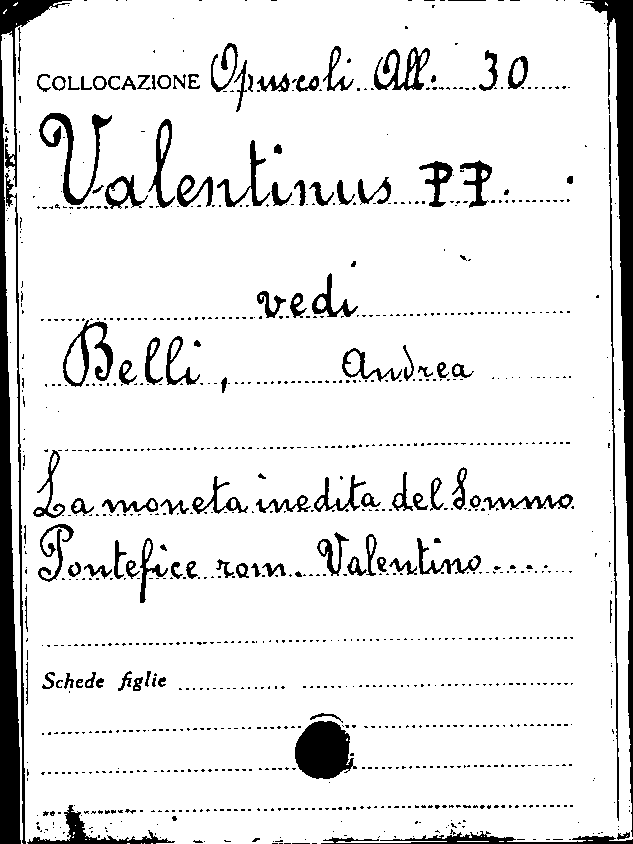 COLLOCAZIONE Opuscoli All. 30
Valentinus PP.
vedi
Belli, Andrea
La moneta inedita del Sommo
Pontefice rom. Valentino....
Schede figlie